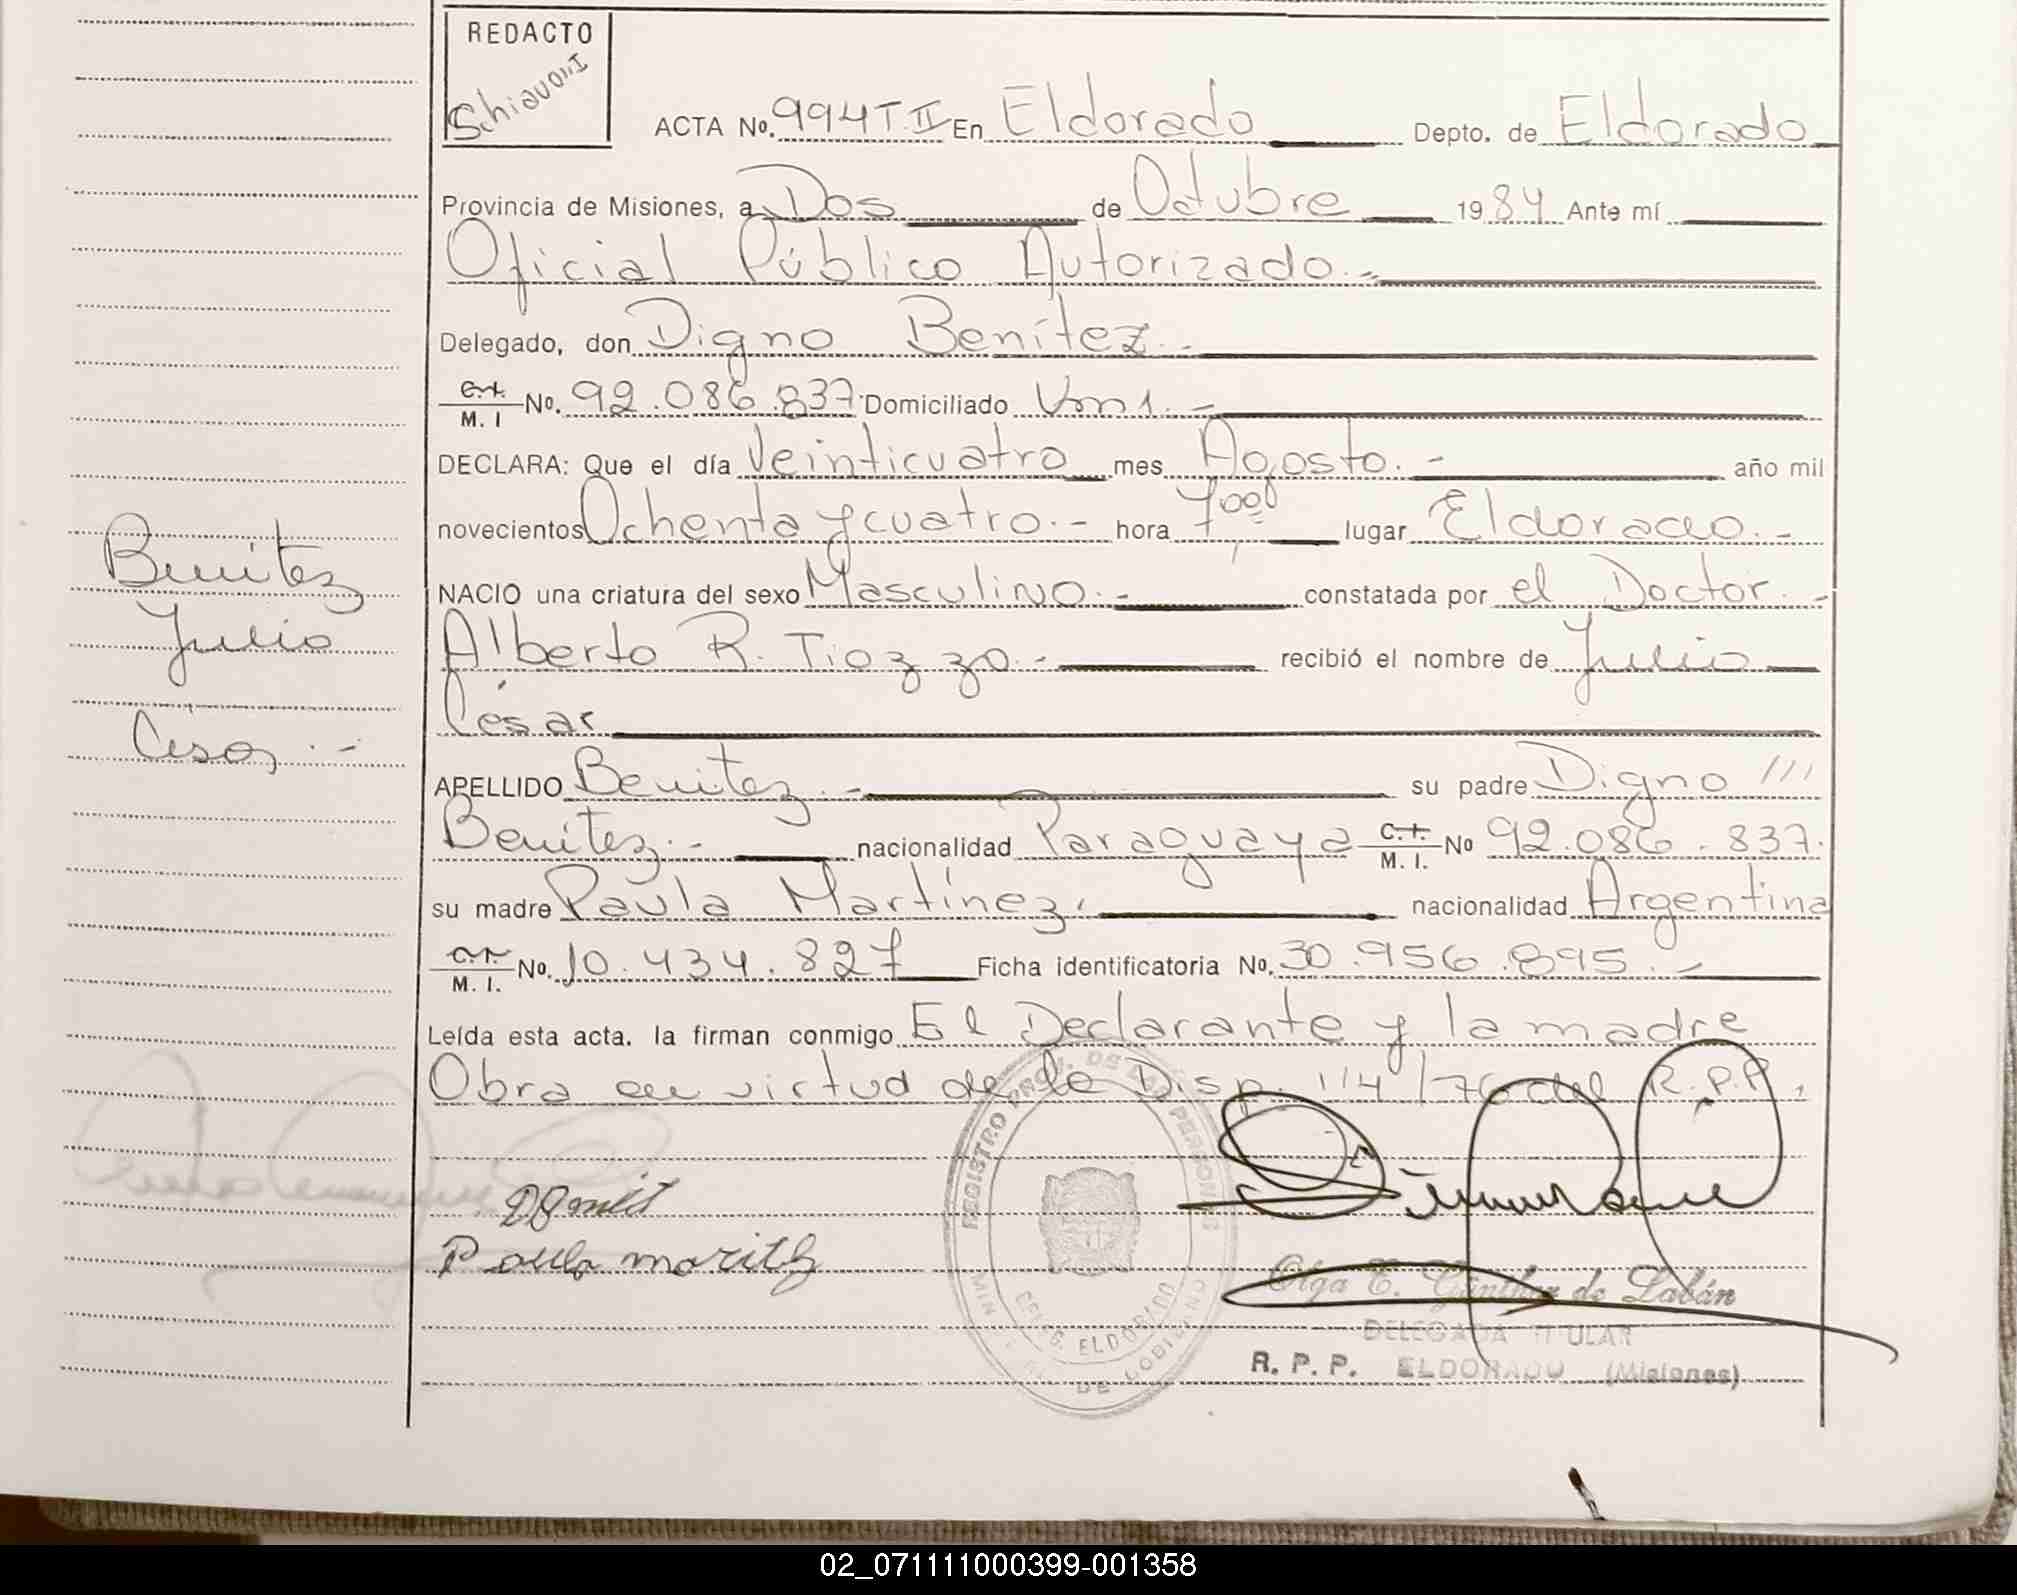 REDACTO
Schiavoni
ACTA No. 994 T. II En Eldorado Depto. de Eldorado
Provincia de Misiones, a Dos de Octubre 1984 Ante mí
Oficial Público Autorizado.-
Delegado, don Digno Benítez.-
M. I No. 92.086.837 Domiciliado
DECLARA: Que el día Veinticuatro mes Agosto.- año mil
novecientos Ochenta y cuatro.- hora 7,00 lugar Eldorado.-
NACIO una criatura del sexo Masculino.- constatada por el Doctor.-
Alberto R. Tiozzo.- recibió el nombre de Julio
César
APELLIDO Benitez.- su padre Digno ///
Benítez.- nacionalidad Paraguaya C.I. M. I. No 92.086.837.
su madre Paula Martínez, nacionalidad Argentina
M. I. No. 10.434.827 Ficha identificatoria No. 30.956.895.-
Leída esta acta. la firman conmigo El Declarante y la madre
Obra en virtud de la Disp. 114/76 del R.P.P.
Benitez
Julio
César.-
Paula
REGISTRO PROV. DE LAS PERSONAS
DELEG. ELDORADO
Olga E. Günther de Labán
DELEGADA TITULAR
R. P. P. ELDORADO (Misiones)
02_071111000399-001358